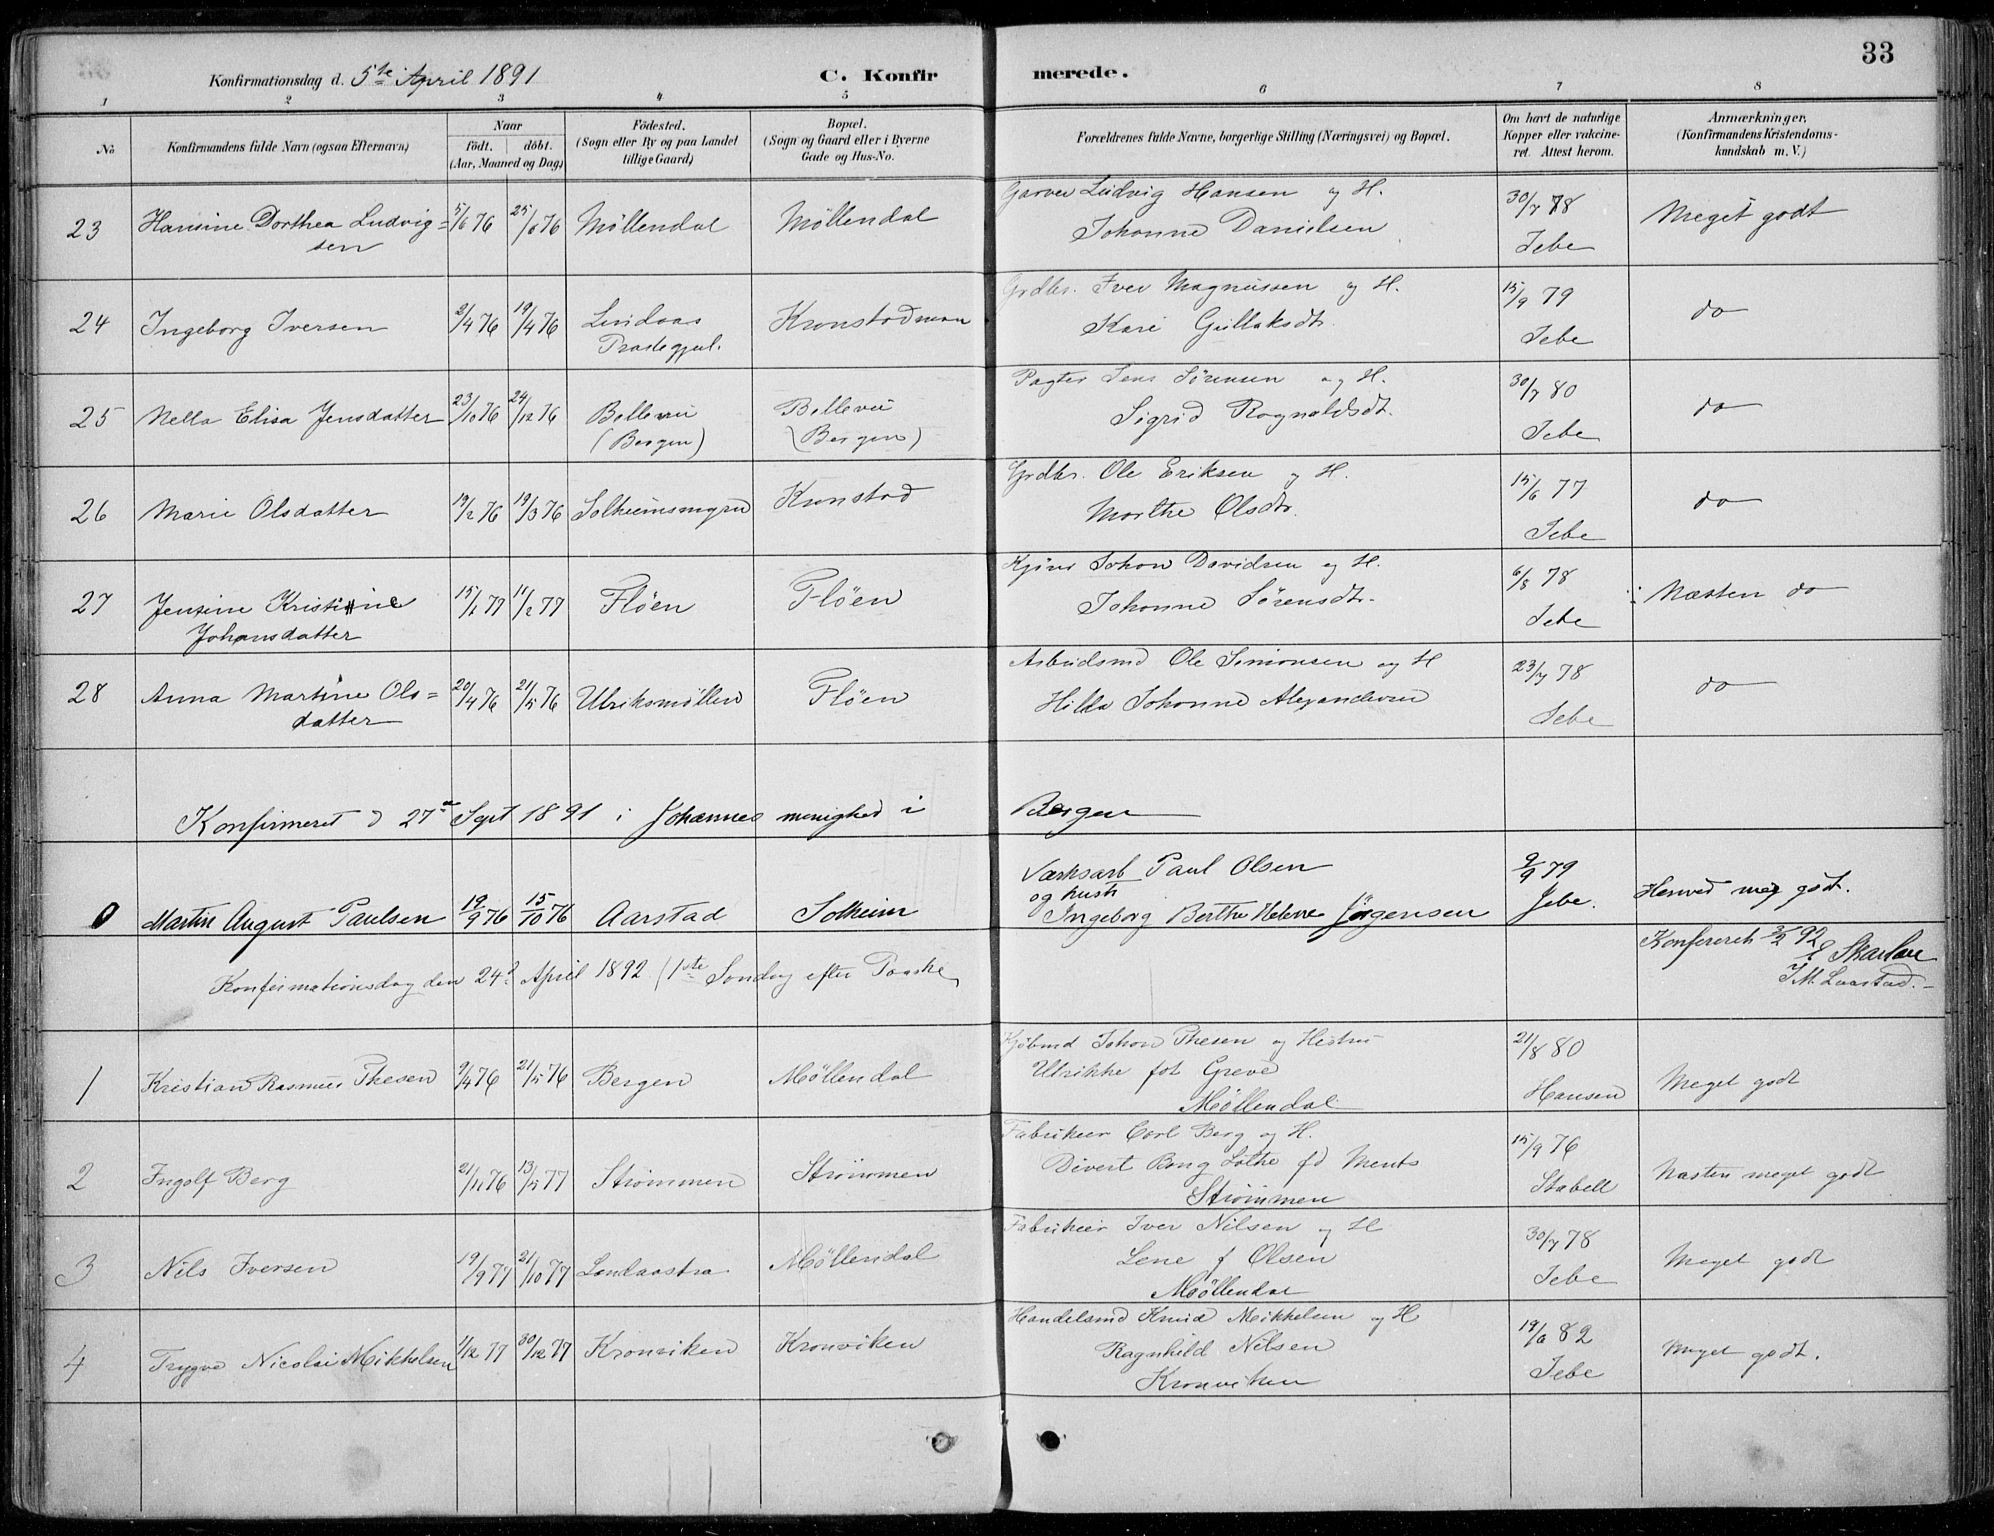 33
Konfirmationsdag d. 5te April 1891 C. Konfirmerede.
1 2 3 4 5 6 7 8
No Konfirmandens fulde Navn (ogsaa Efternavn) Naar Født. døbt. (Aar, Maaned og Dag) Fødested. (Sogn eller By og paa Landet tillige Gaard) Bopæl. (Sogn og Gaard eller i Byerne Gade og Hus-No. Forældrenes fulde Navne, borgerlige Stilling (Næringsvei) og Bopæl. Om havt de naturlige Kopper eller vakcineret. Attest herom. Anmærkninger. (Konfirmandens Kristendomskundskab m. V.)
23 Hansine Dorthea Ludvig= 5/6 76 25/6 76 Møllendal Møllendal Garver Ludvig Hansen og H. 30/7 78 Meget godt
sen Johanne Danielsen Jebe
24 Ingeborg Iversen 2/4 76 19/4 76 Lindaas Kronstadmon Grdbr. Iver Magnussen og H. 15/9 79 do
Præstegjæl. Kari Gullaksdtr. Jebe
25 Nella Elisa Jensdatter 23/10 76 24/12 76 Bellevue Bellevue Pagter Jens Sørensen og H. 30/7 80 do
(Bergen) (Bergen) Sigrid Ragnaldsdt. Jebe
26 Marie Olsdatter 19/2 76 19/3 76 Solheimsmyren Kronstad Grdbr. Ole Eriksen og H. 15/6 77 do
Marthe Olsdtr. Jebe
27 Jensine Kristine 15/1 77 11/2 77 Fløen Fløen Johan Davidsen og H. 6/8 78 Næsten do
Johansdatter Johanne Sørensdtr. Jebe
28 Anna Martine Ols= 20/4 76 21/5 76 Ulriksmøllen Fløen Arbeidsmd Ole Simonsen og H 23/7 78 do
datter Hilda Johanne Alexandersen Jebe
Konfirmeret d 27de Sept 1891 i Johannes menighed i Bergen
0 Martin August Paulsen 19/9 76 15/10 76 Aarstad Solheim Værksarb Paul Olsen 9/9 79 Henved meg godt.
og hustr
Ingeborg Berthe Helene Jørgensen Jebe.
Konfirmationsdag den 24de April 1892 (1ste Søndag efter Paaske Konfereret 3/2 92
J.M. Laastad.
1 Kristian Rasmus Thesen 9/4 76 21/5 76 Bergen Møllendal Kjøbmd Johan Thesen og Hustru 21/8 80 Meget godt
Ulrikke fød Greve Hansen
Møllendal
2 Ingolf Berg 21/11 76 13/5 77 Strømmen Strømmen Fabrikeier Carl Berg og H. 15/9 76 Næsten meget godt
Divert Bang Lothe fd Ments Stabell
Strømmen
3 Nils Iversen 19/9 77 21/10 77 Landaastra Møllendal Fabrikeier Iver Nilsen og H 30/7 78 Meget godt
Lene f Olsen Jebe
Møllendal
4 Trygve Nicolai Mikkelsen 1/12 77 30/12 77 Kronviken Kronviken Handelsmd Knud Mikkelsen og H 19/6 82 Meget godt.
Ragnhild Nilsen Jebe
Kronviken